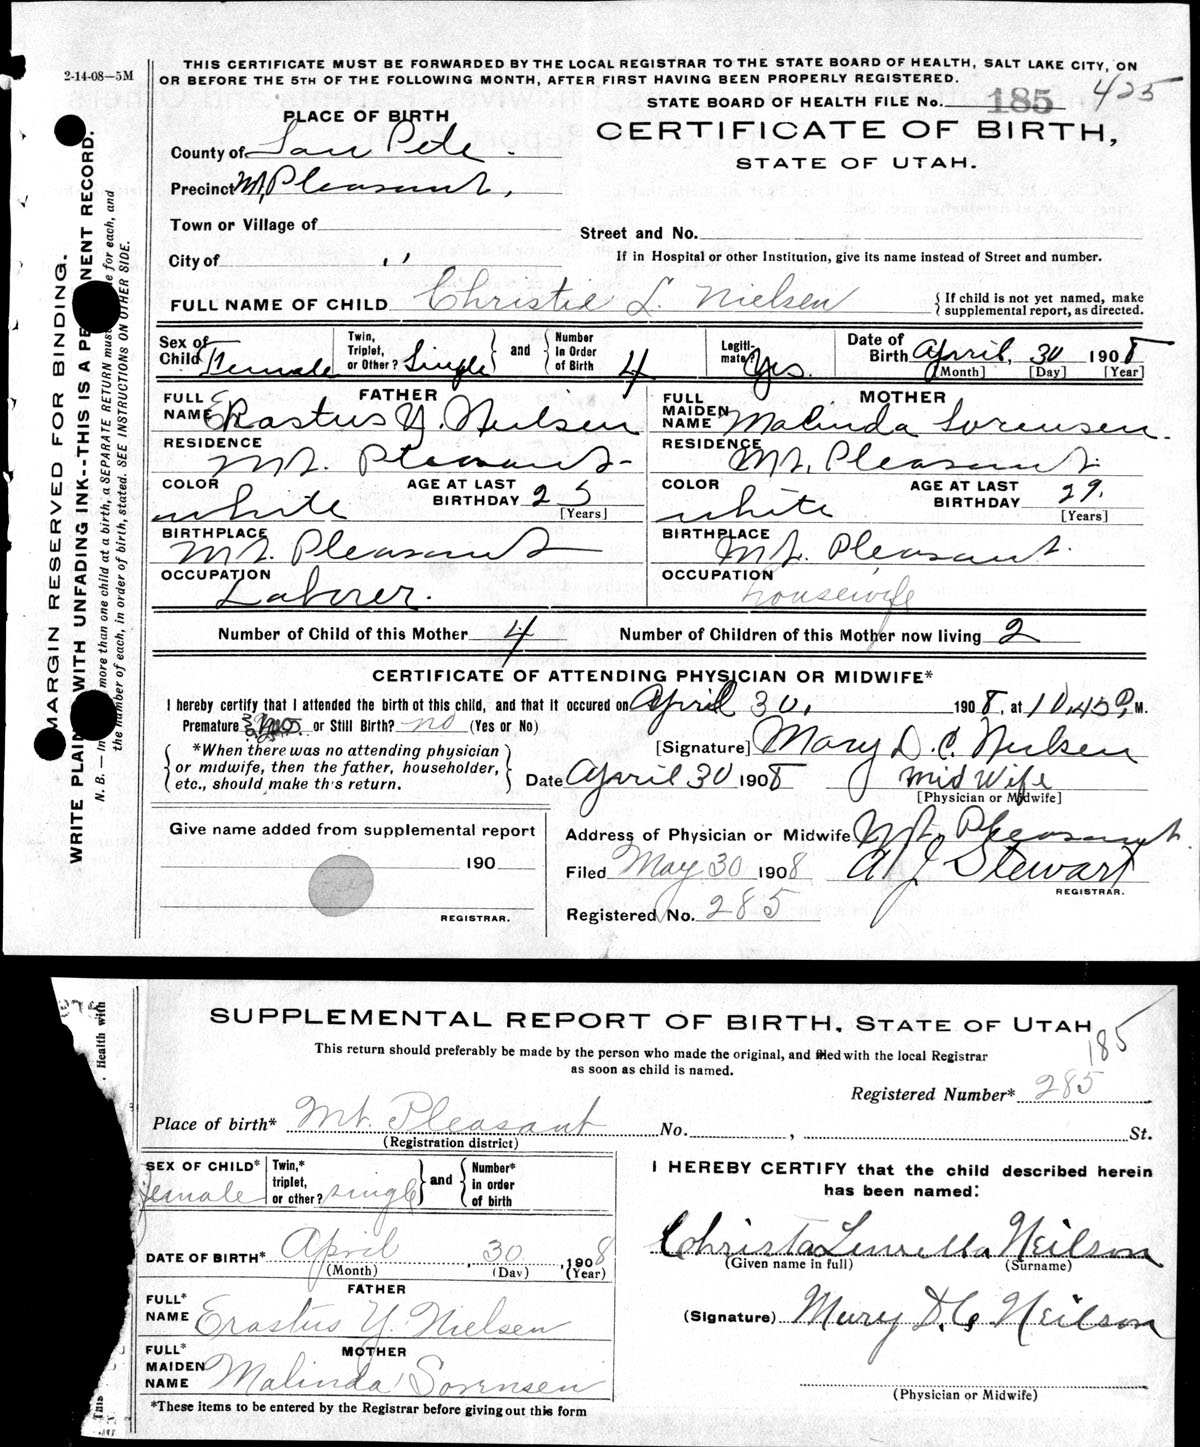 2-14-08—5M
THIS CERTIFICATE MUST BE FORWARDED BY THE LOCAL REGISTRAR TO THE STATE BOARD OF HEALTH, SALT LAKE CITY, ON
OR BEFORE THE 5TH OF THE FOLLOWING MONTH, AFTER FIRST HAVING BEEN PROPERLY REGISTERED.
STATE BOARD OF HEALTH FILE No. 185 425
PLACE OF BIRTH
CERTIFICATE OF BIRTH,
STATE OF UTAH.
County of San Pete.
Precinct Mt, Pleasant,
Town or Village of
Street and No.
City of ,,
If in Hospital or other Institution, give its name instead of Street and number.
FULL NAME OF CHILD Christie L. Nielsen { If child is not yet named, make
supplemental report, as directed.
Sex of Child Female Twin, Triplet, or Other? Single and Number in Order of Birth 4 Legiti-mate? Yes. Date of Birth April, 30 1908
[Month] [Day] [Year]
FATHER MOTHER
FULL NAME Erastus Y. Neilsen FULL MAIDEN NAME Malinda Sorensen.
RESIDENCE Mt. Pleasant RESIDENCE Mt, Pleasant
COLOR white AGE AT LAST BIRTHDAY 25 [Years] COLOR white AGE AT LAST BIRTHDAY 29. [Years]
BIRTHPLACE Mt. Pleasant BIRTHPLACE Mt. Pleasant.
OCCUPATION Laborer. OCCUPATION housewife
Number of Child of this Mother 4 Number of Children of this Mother now living 2
CERTIFICATE OF ATTENDING PHYSICIAN OR MIDWIFE*
I hereby certify that I attended the birth of this child, and that it occured on April 30, 1908, at 10,45 P, M.
Premature ? or Still Birth? no (Yes or No)
*When there was no attending physician
or midwife, then the father, householder,
etc., should make this return.
[Signature] Mary D. C. Neilsen
Date April 30 1908 Mid Wife
[Physician or Midwife]
Give name added from supplemental report
190
REGISTRAR.
Address of Physician or Midwife Mt. Pleasant
Filed May 30 1908 A J Stewart
REGISTRAR.
Registered No. 285
MARGIN RESERVED FOR BINDING.
WRITE PLAIN WITH UNFADING INK--THIS IS A PE NENT RECORD.
N. B. — In more than one child at a birth, a SEPARATE RETURN must e for each, and
the number of each, in order of birth, stated. SEE INSTRUCTIONS ON OTHER SIDE.
SUPPLEMENTAL REPORT OF BIRTH, STATE OF UTAH
185
This return should preferably be made by the person who made the original, and filed with the local Registrar
as soon as child is named.
Registered Number* 285
Place of birth* Mt. Pleasant No. , St.
(Registration district)
SEX OF CHILD* female Twin,* triplet, or other? single and Number* in order of birth
I HEREBY CERTIFY that the child described herein
has been named:
DATE OF BIRTH* April , 30 , 1908
(Month) (Day) (Year)
Christa Luwella Neilson
(Given name in full) (Surname)
FATHER
FULL* NAME Erastus Y. Nielsen
(Signature) Mary D. C. Neilson
MOTHER
FULL* MAIDEN NAME Malinda Sorensen
(Physician or Midwife)
*These items to be entered by the Registrar before giving out this form
Health with
This